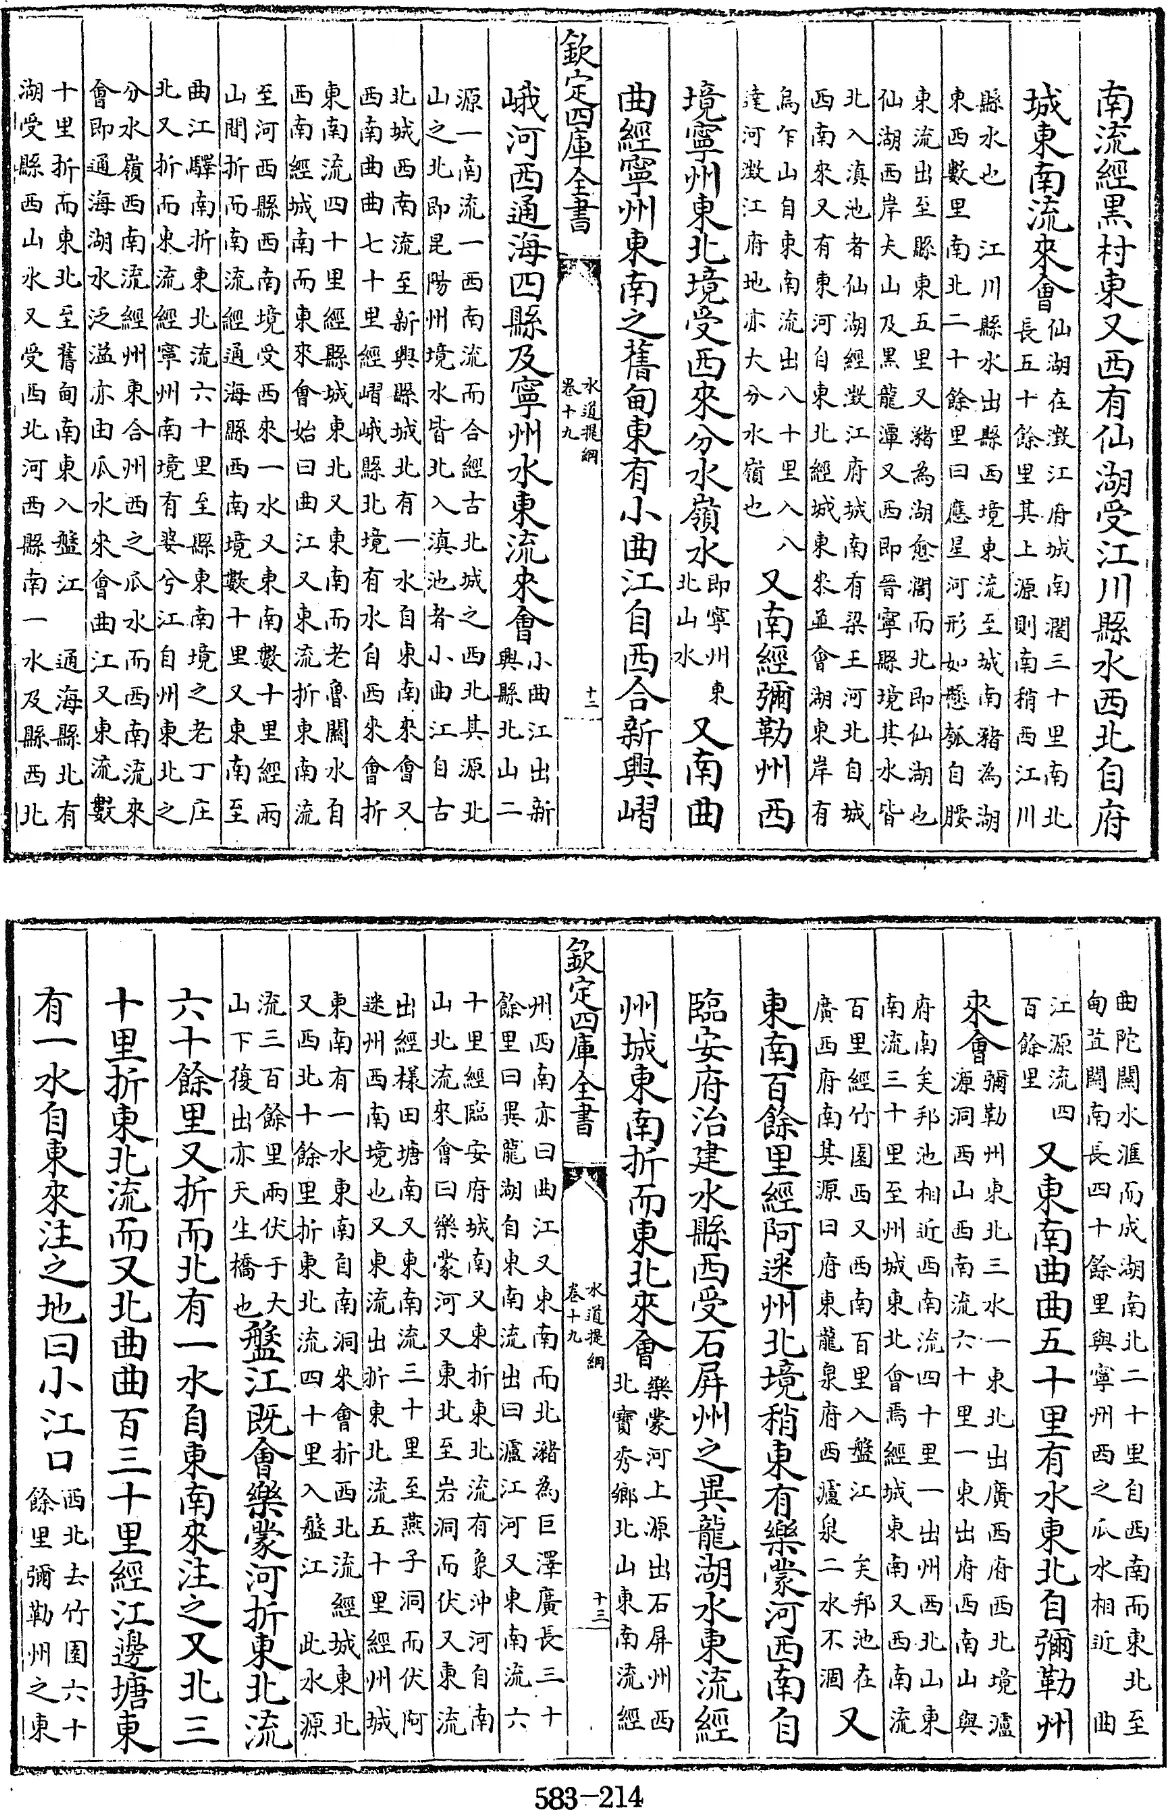 南流經黒村東又西有仙湖受江川縣水西北自府
城東南流來會仙湖在澂江府城南濶三十里南北
長五十餘里其上源則南稍西江川
縣水也　江川縣水出縣西境東流至城南豬為湖
東西數里南北二十餘里曰應星河形如懸瓠自腰
東流出至縣東五里又豬為湖愈濶而北即仙湖也
仙湖西岸夫山及黒龍潭又西即晉寧縣境其水皆
北入滇池者仙湖經澂江府城南有梁王河北自城
西南來又有東河自東北經城東來並會湖東岸有
烏乍山自東南流出八十里入八
達河澂江府地亦大分水嶺也　又南經彌勒州西
境寧州東北境受西來分水嶺水即寧州東
北山水　又南曲
曲經寧州東南之舊甸東有小曲江自西合新興嶍
欽定四庫全書
水道提綱
卷十九
十二
峨河西通海四縣及寧州水東流來會小曲江出新
興縣北山二
源一南流一西南流而合經古北城之西北其源北
山之北即昆陽州境水皆北入滇池者小曲江自古
北城西南流至新興縣城北有一水自東南來會又
西南曲曲七十里經嶍峨縣北境有水自西來會折
東南流四十里經縣城東北又東南而老魯關水自
西南經城南而東來會始曰曲江又東流折東南流
至河西縣西南境受西來一水又東南數十里經兩
山間折而南流經通海縣西南境數十里又東南至
曲江驛南折東北流六十里至縣東南境之老丁庄
北又折而東流經寧州南境有婆兮江自州東北之
分水嶺西南流經州東合州西之瓜水而西南流來
會即通海湖水泛溢亦由瓜水來會曲江又東流數
十里折而東北至舊甸南東入盤江　通海縣北有
湖受縣西山水又受西北河西縣南一水及縣西北
曲陀關水滙而成湖南北二十里自西南而東北至
甸苴關南長四十餘里與寧州西之瓜水相近　曲
江源流四
百餘里　又東南曲曲五十里有水東北自彌勒州
來會彌勒州東北三水一東北出廣西府西北境瀘
源洞西山西南流六十里一東出府西南山與
府南矣邦池相近西南流四十里一出州西北山東
南流三十里至州城東北會焉經城東南又西南流
百里經竹園西又西南百里入盤江　矣邦池在
廣西府南其源曰府東龍泉府西瀘泉二水不涸　又
東南百餘里經阿迷州北境稍東有樂蒙河西南自
臨安府治建水縣西受石屏州之異龍湖水東流經
州城東南折而東北來會樂蒙河上源出石屏州西
北寶秀鄉北山東南流經
欽定四庫全書
水道提綱
卷十九
十三
州西南亦曰曲江又東南而北瀦為巨澤廣長三十
餘里曰異龍湖自東南流出曰瀘江河又東南流六
十里經臨安府城南又東折東北流有象沖河自南
山北流來會曰樂蒙河又東北至岩洞而伏又東流
出經樣田塘南又東南流三十里至燕子洞而伏阿
迷州西南境也又東流出折東北流五十里經州城
東南有一水東南自南洞來會折西北流經城東北
又西北十餘里折東北流四十里入盤江　此水源
流三百餘里兩伏于大
山下復出亦天生橋也盤江既會樂蒙河折東北流
六十餘里又折而北有一水自東南來注之又北三
十里折東北流而又北曲曲百三十里經江邊塘東
有一水自東來注之地曰小江口西北去竹園六十
餘里彌勒州之東
583-214